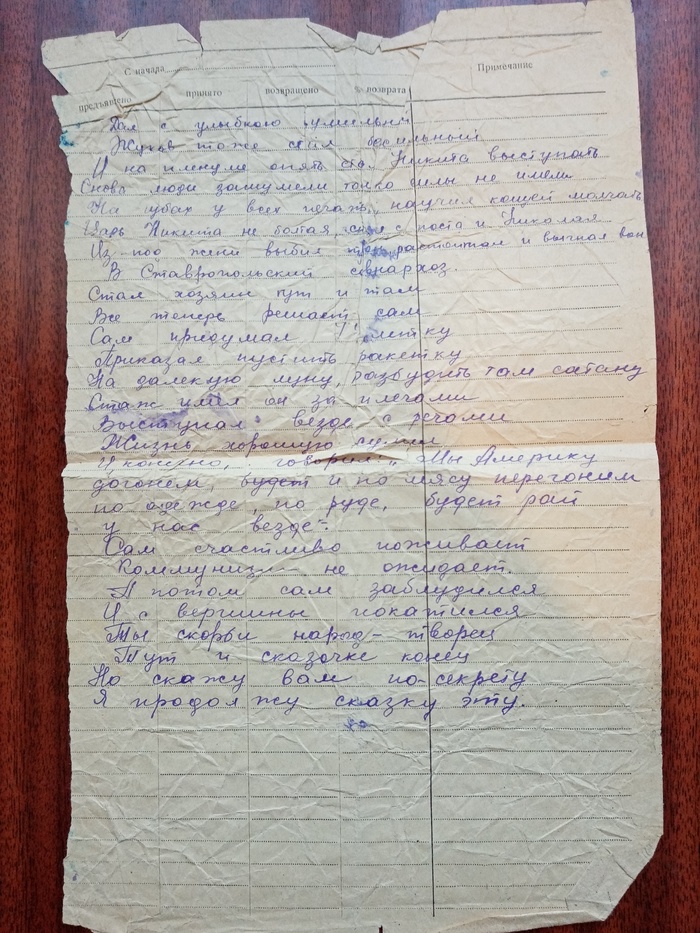 С начала
предъявлено принято возвращено % возврата Примечание
Дал с улыбкою умильной
Жуков тоже был
И на пленуме опять стал Никита выступать
Снова люди зашумели только силы не имели
На губах у всех печать, научил кощей молчать
Царь Никита не болтая, снял с поста и Николая
Из-под жени выбил трон, рассчитал и выгнал вон
В Ставропольский совнархоз.
Стал хозяин тут и там
Все теперь решает сам
Сам придумал
Приказал пустить ракетку
На далекую луну, разбудить там сатану
Стаж имел он за плечами
Выступал везде с речами
Жизнь хорошую
И конечно, говорил: "Мы Америку
догоним, будет и по мясу перегоним
по одежде, по руде, будет рай
у нас везде".
Сам счастливо поживает
Коммунизм не ожидает.
А потом сам заблудился
И с вершины покатился
Ты скорби народ - творец
Тут и сказочке конец
Но скажу вам по-секрету
Я продолжу сказку эту.